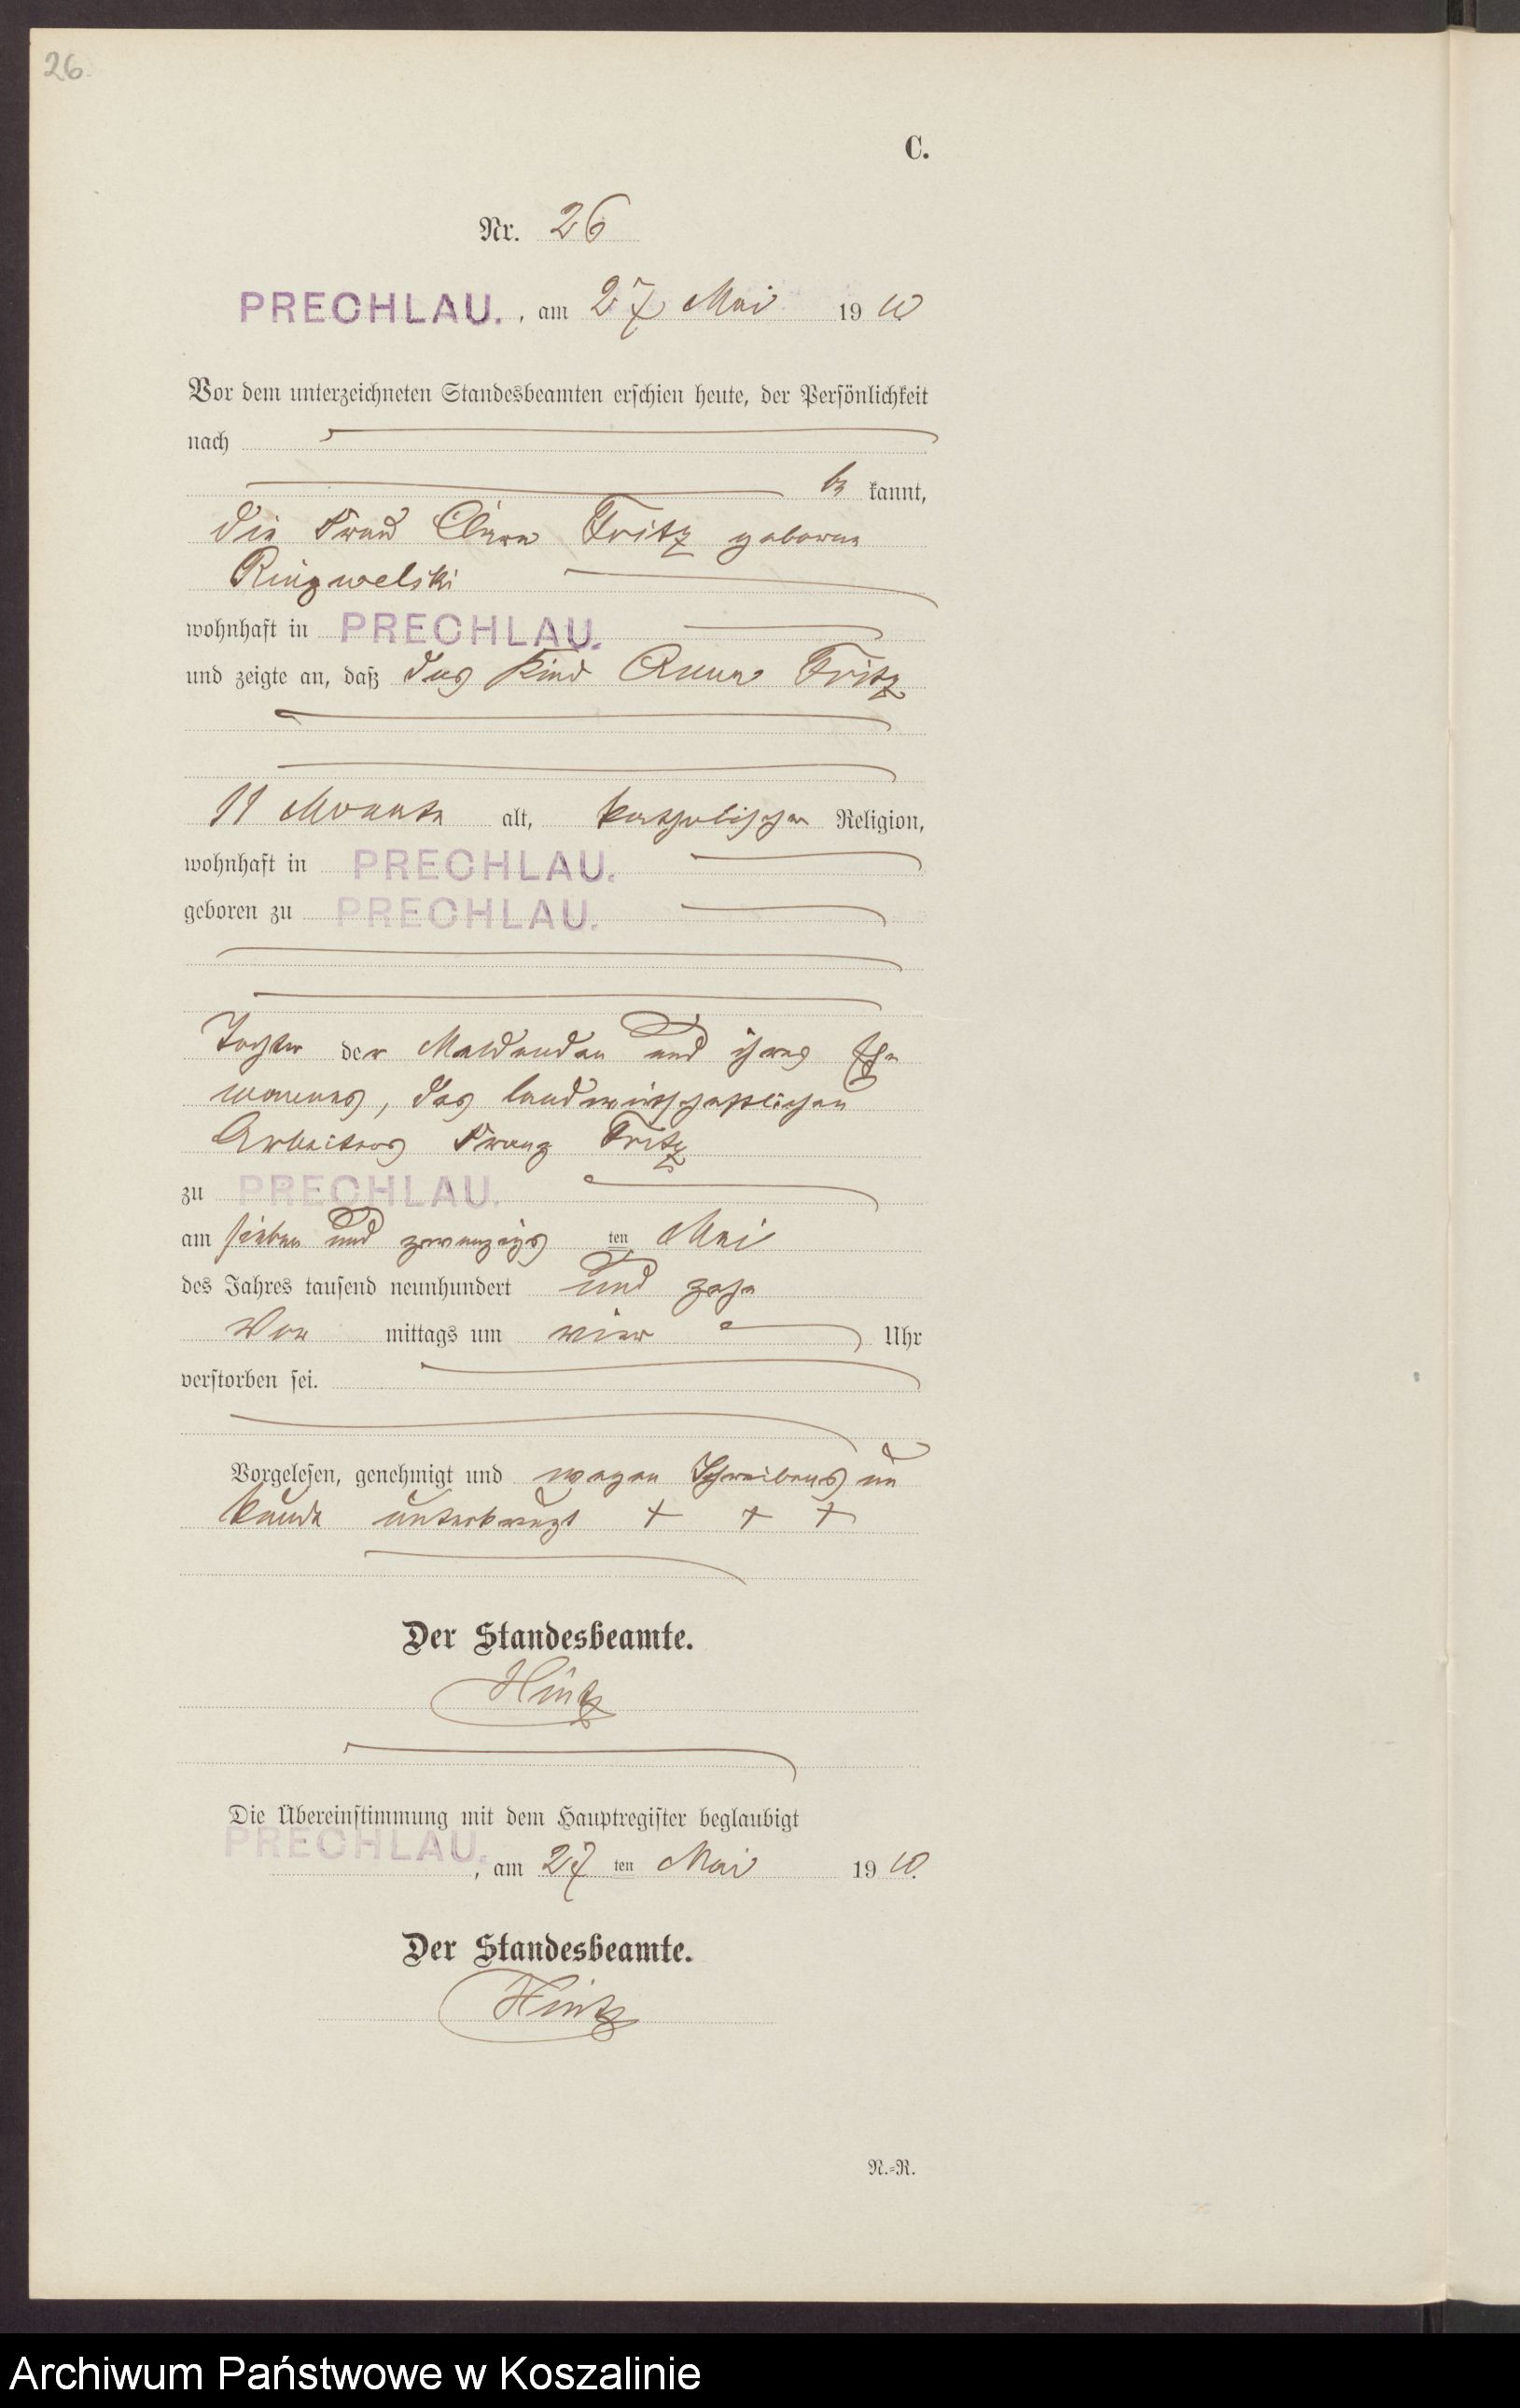 26.
C.
Nr. 26
PRECHLAU. , am 27 Mai 1910
Vor dem unterzeichneten Standesbeamten erschien heute, der Persönlichkeit
nach
be kannt,
die Frau Clara Fritz geborene
Ringwelski
wohnhaft in PRECHLAU.
und zeigte an, daß das Kind Anna Fritz
11 Monate alt, katholischer Religion,
wohnhaft in PRECHLAU.
geboren zu PRECHLAU.
Tochter der Meldenden und ihres Ehe
mannes, des landwirthschaftlichen
Arbeiters Franz Fritz
zu PRECHLAU.
am sieben und zwanzigs ten Mai
des Jahres tausend neunhundert und zehn
Vor mittags um vier Uhr
verstorben sei.
Vorgelesen, genehmigt und wegen Schreibens un
kunde unterkreuzt + + +
Der Standesbeamte.
Hintz
Die Übereinstimmung mit dem Hauptregister beglaubigt
PRECHLAU. , am 27 ten Mai 1910.
Der Standesbeamte.
Hintz
N.=R.
Archiwum Państwowe w Koszalinie